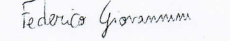 Federico Giovannini